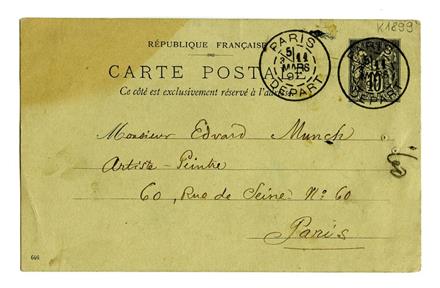 K1899
RÉPUBLIQUE FRANÇAISE
CARTE POSTA
Ce côté est exclusivement réservé à l'adre
PARIS
MARS
DEPART
PARIS
DEPART
Monsieur Edvard Munch
Artiste-Peintre
60, Rue de Seine No 60
Paris